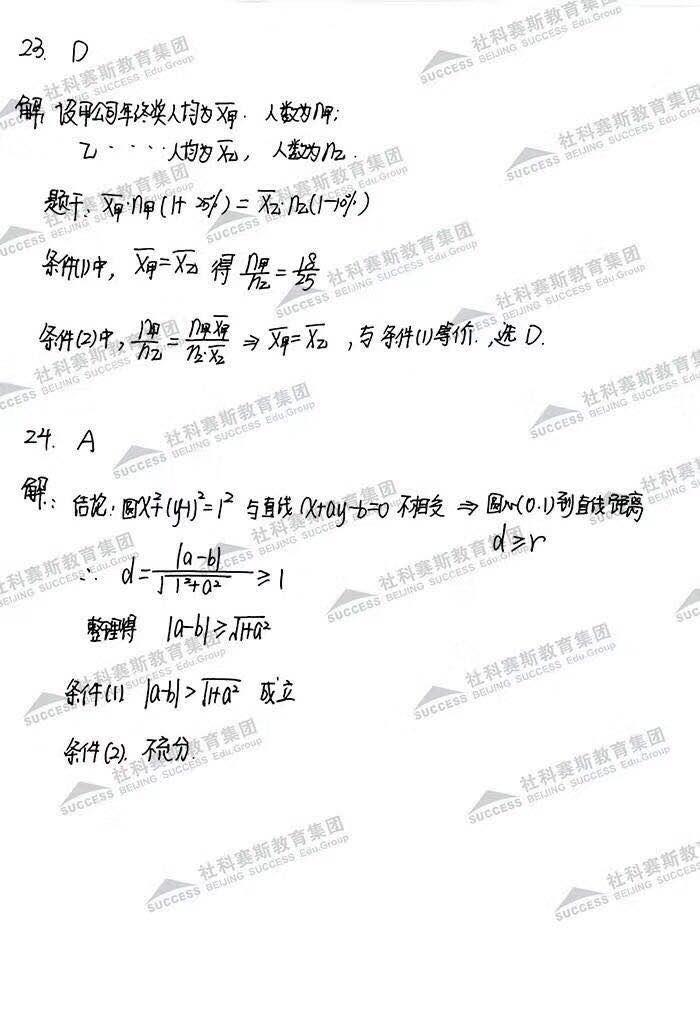 23. D
解: 设甲公司年终奖人均为x̄甲. 人数为n甲;
乙 · · · · 人均为x̄乙, 人数为n乙.
题干: x̄甲·n甲(1+25%)=x̄乙·n乙(1-10%)
条件(1)中, x̄甲=x̄乙 得 n甲/n乙=18/25
条件(2)中, n甲/n乙=n甲x̄甲/n乙·x̄乙 ⇒ x̄甲=x̄乙, 与条件(1)等价., 选 D.
24. A
解: 结论: 圆x²+(y-1)²=1² 与直线 x+ay-b=0 不相交 ⇒ 圆心(0.1)到直线距离
d≥r
∴ d=|a-b|/√1²+a² ≥1
整理得 |a-b|≥√1+a²
条件(1) |a-b|>√1+a² 成立
条件(2). 不充分.
社科赛斯教育集团
SUCCESS BEIJING SUCCESS Edu.Group